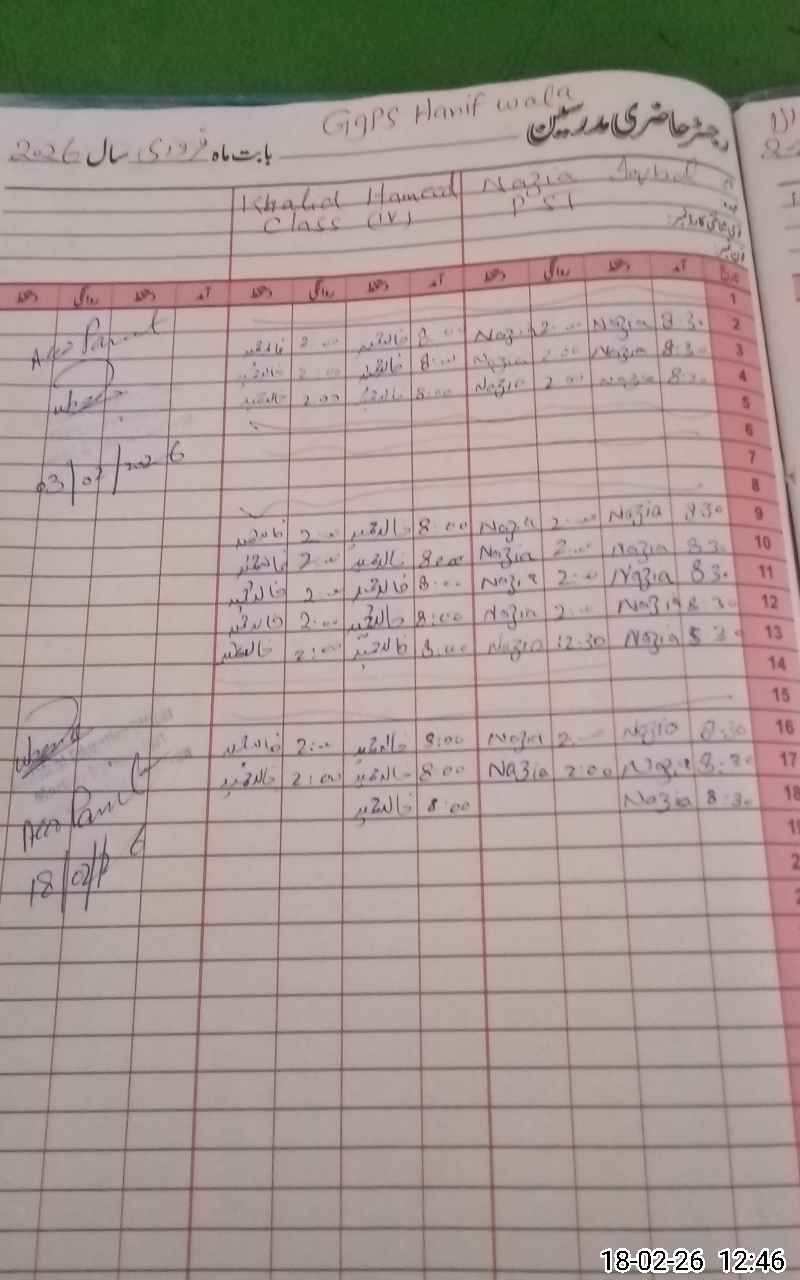 GGPS Hanif wala
رجسٹر حاضری مدرسین
بابت ماہ فروری سال 2026
Nazia Iqbal Khalid Hameed
PST Class (IV)
آمد دستخط روانگی دستخط آمد دستخط روانگی دستخط آمد دستخط روانگی دستخط
1
2 8:30 Nazia 2:00 Nazia 8:00 خالد حمید 2:00 خالد حمید
3 8:30 Nazia 2:00 Nazia 8:00 خالد حمید 2:00 خالد حمید
4 8:30 Nazia 2:00 Nazia 8:00 خالد حمید 2:00 خالد حمید
5
6
7
03/02/2026
8
9 8:30 Nazia 2:00 Nazia 8:00 خالد حمید 2:00 خالد حمید
10 8:30 Nazia 2:00 Nazia 8:00 خالد حمید 2:00 خالد حمید
11 8:30 Nazia 2:00 Nazia 8:00 خالد حمید 2:00 خالد حمید
12 8:30 Nazia 2:00 Nazia 8:00 خالد حمید 2:00 خالد حمید
13 8:30 Nazia 12:30 Nazia 8:00 خالد حمید 2:00 خالد حمید
14
15
16 8:30 Nazia 2:00 Nazia 8:00 خالد حمید 2:00 خالد حمید
17 8:30 Nazia 2:00 Nazia 8:00 خالد حمید 2:00 خالد حمید
18 8:30 Nazia 8:00 خالد حمید
18-02-26 12:46